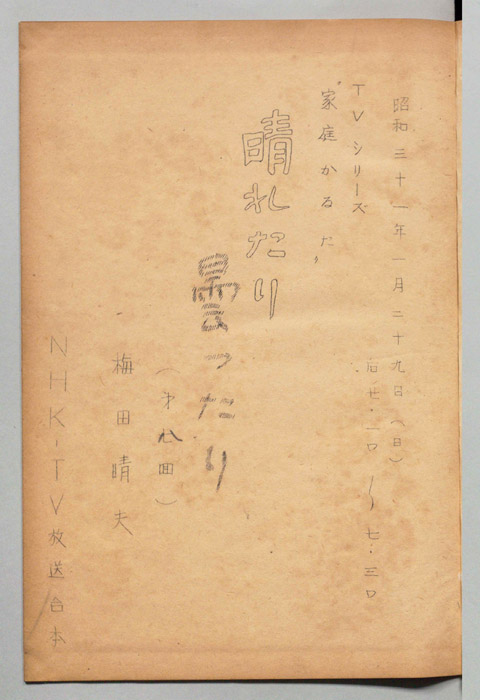 昭和三十一年一月二十九日(日)
后七・一〇〜七・三〇
TVシリーズ
"家庭かるた"
晴れたり
曇ったり
(才八回)
梅田晴夫
NHK-TV放送台本